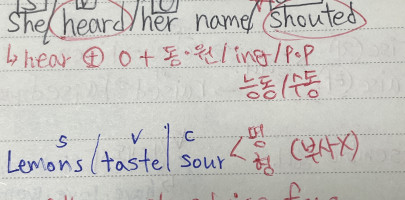 She/heard/her name/shouted
↳ hear ⊕ O + 동·원/ing/p.p
능동/수동
S V C
Lemons/taste/sour < 명 형 (부사X)